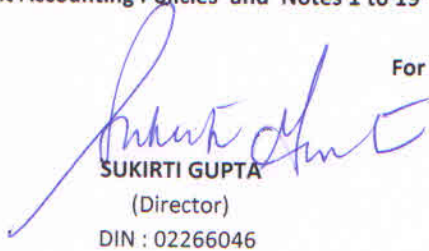 Accounting Policies and Notes 1 to 19
For
SUKIRTI GUPTA
(Director)
DIN : 02266046